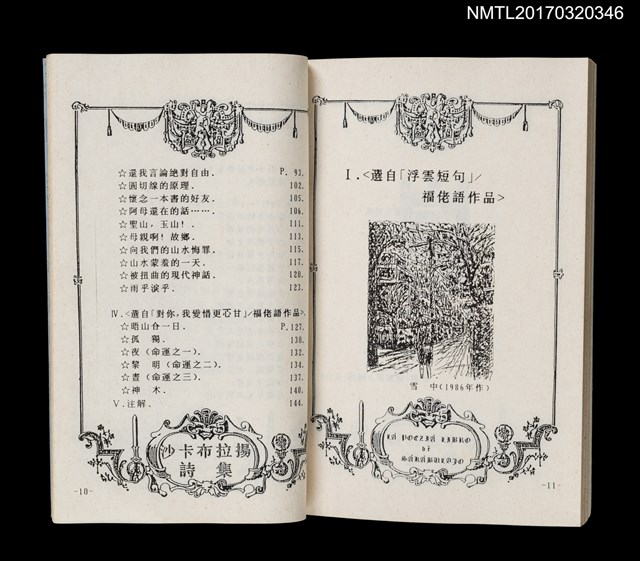 NMTL20170320346
☆還我言論絕對自由. P. 93.
☆圓切線的原理. 102.
☆懷念一本書的好友. 105.
☆阿母還在的話……. 106.
☆聖山，玉山！. 111.
☆母親啊！故鄉. 113.
☆向我們的山水悔罪. 115.
☆山水蒙羞的一天. 117.
☆被扭曲的現代神話. 120.
☆雨乎淚乎. 123.
Ⅳ.<選自「對你，我變惜更芯甘」/福佬語作品>.
☆唔山仒一日. P.127.
☆孤　獨. 130.
☆夜（命運之一）. 132.
☆黎　明（命運之二）. 134.
☆晝（命運之三）. 137.
☆神　木. 140.
Ⅴ.注解. 144.
沙卡布拉揚
詩集
-10-
Ⅰ.<選自「浮雲短句」/
福佬語作品>
雪　中(1986年作)
LA POEZIA LIBRO
de
-11-